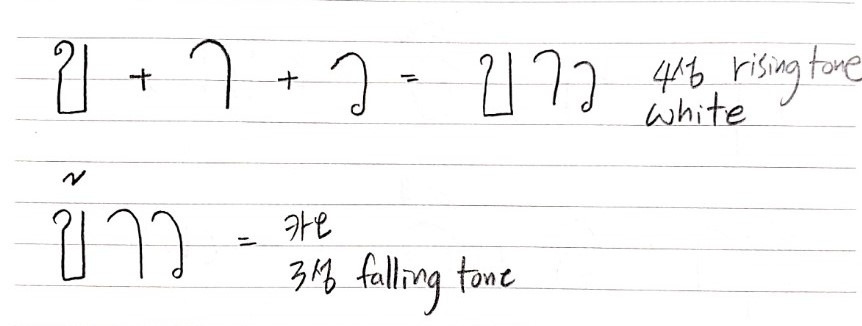 ข + า + ว = ขาว 4성 rising tone
white
ข้าว =
3성 falling tone